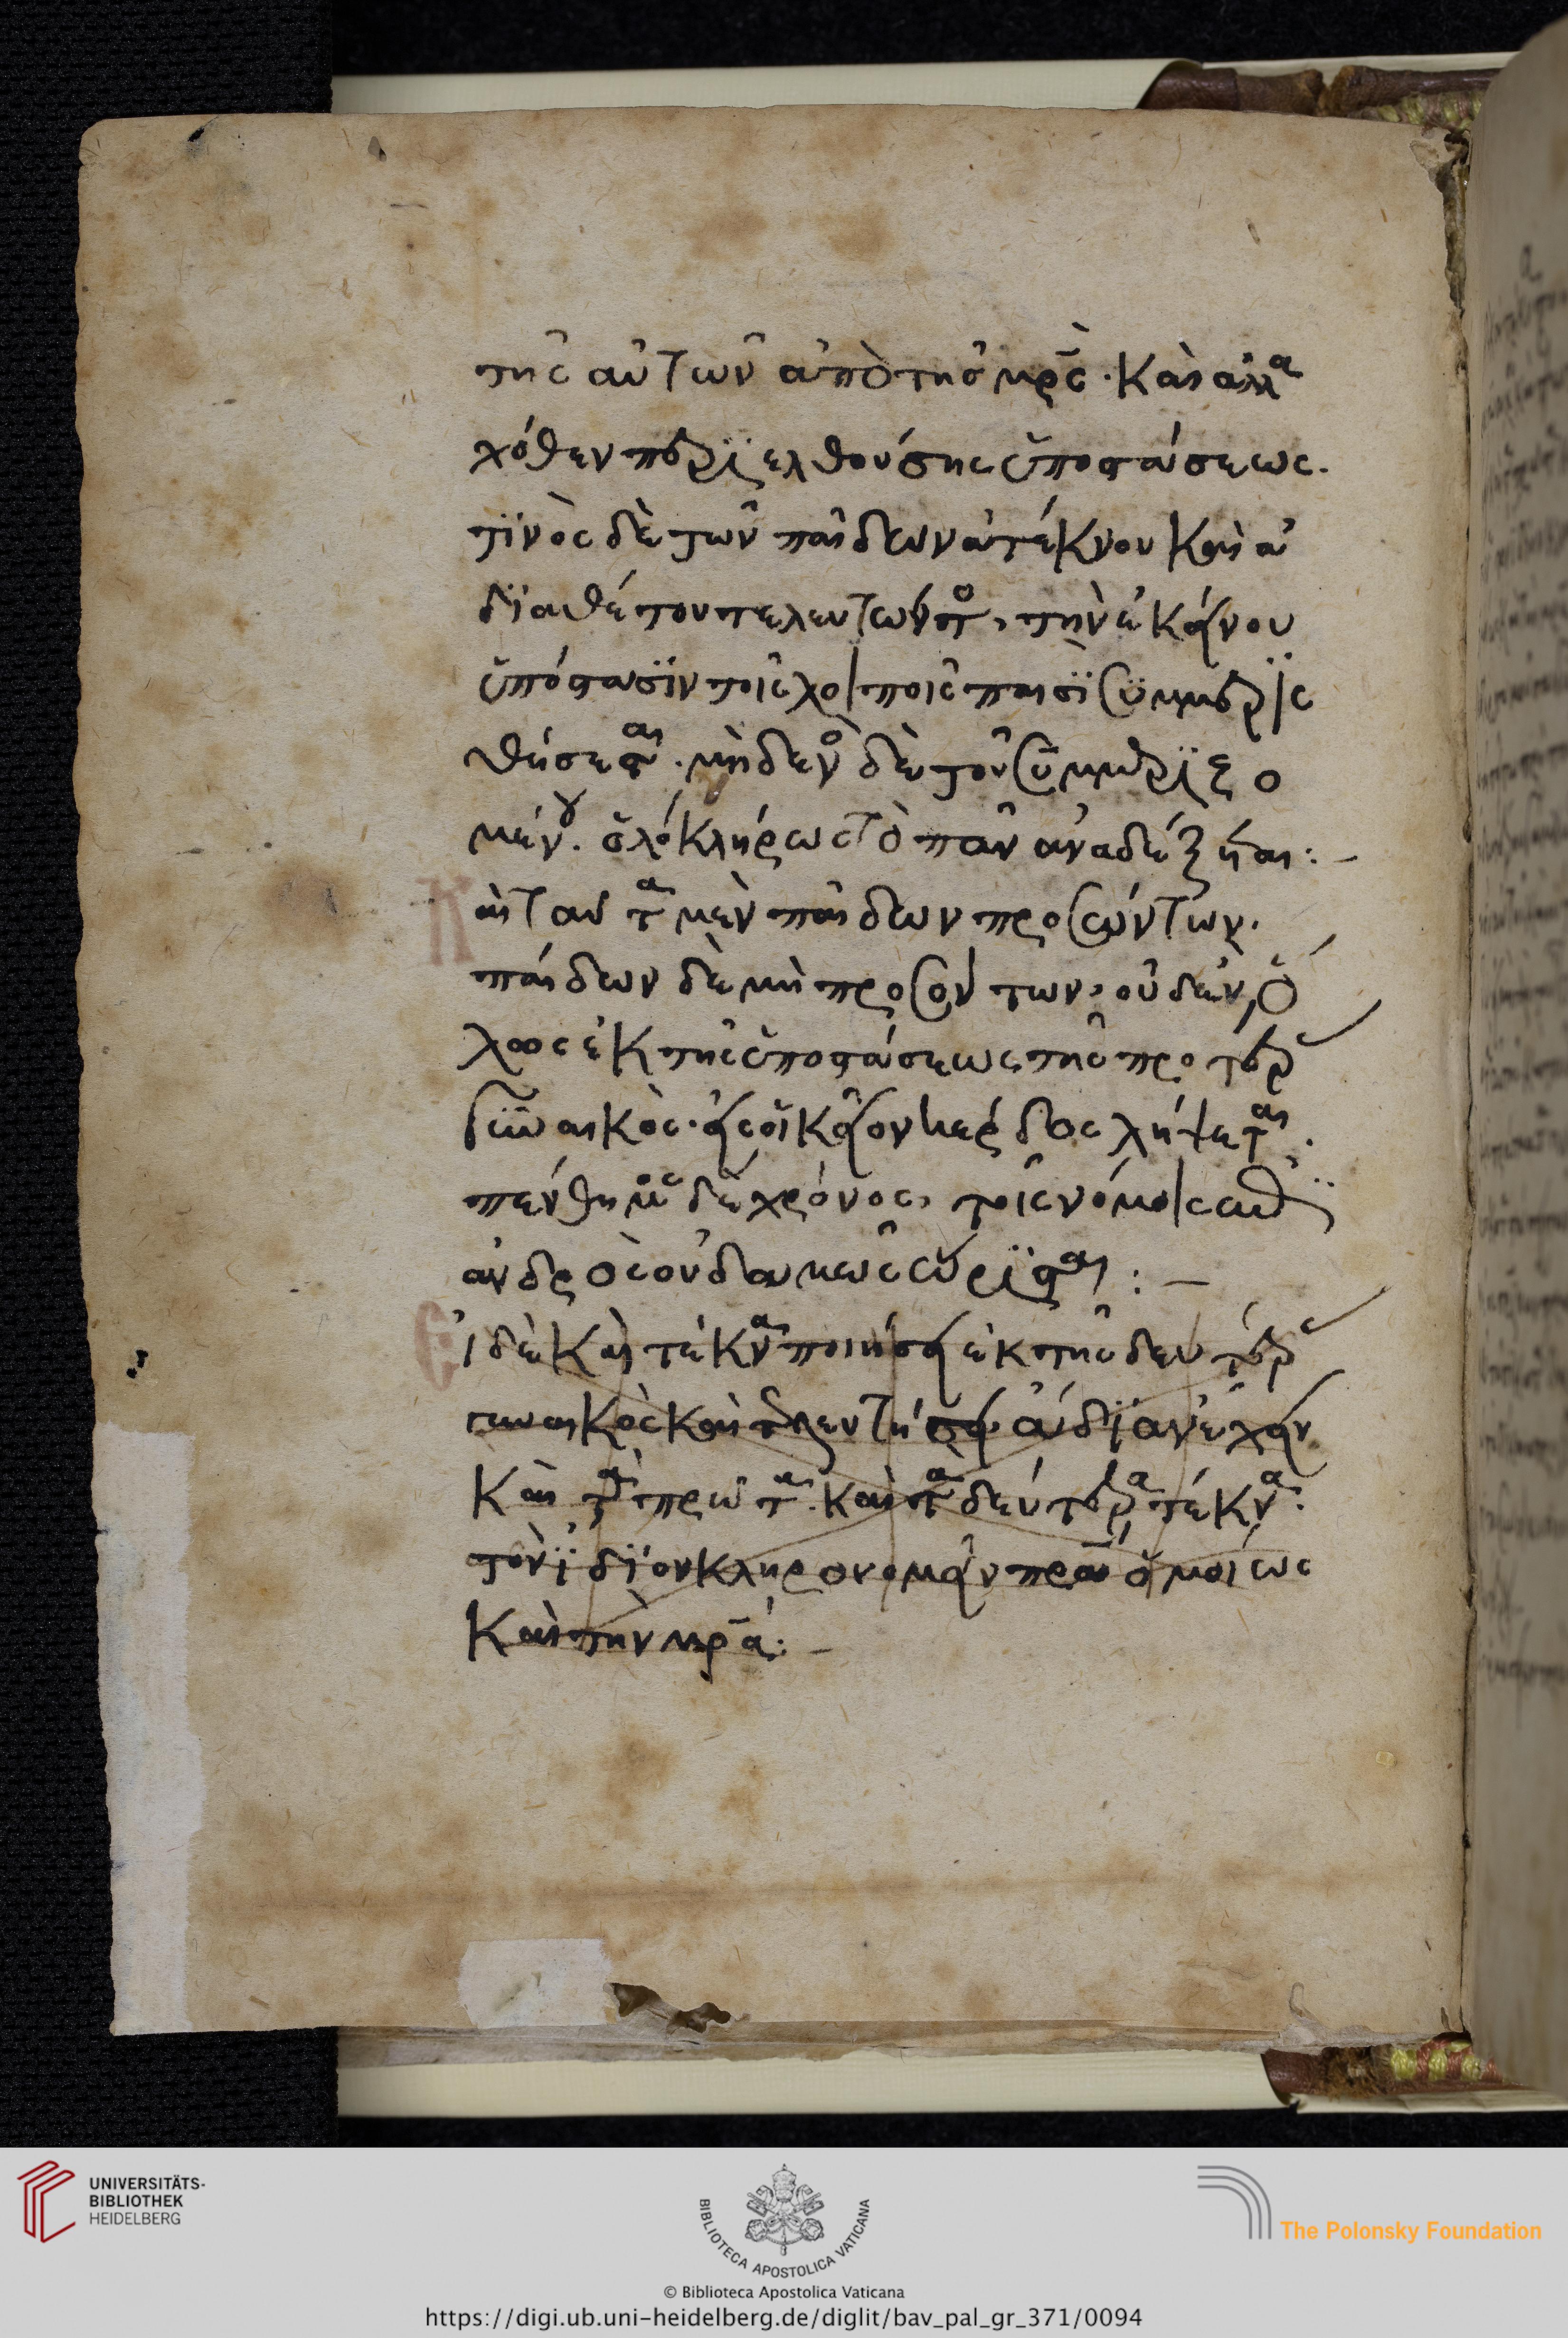 της αὐτῶν ἀπὸ τῆς μρ̅ς. καὶ ἀλλα
χόθεν περιελθούσης ὑποστάσεως.
τινὸς δὲ τῶν παίδων ἀτέκνου καὶ ἀ
διαθέτου τελευτῶντο, τὴν ἐκείνου
ὑπόστασϊν τοῖς λοιποῖς παισῒ συμμερις
θήσεσται. μηδενὸ δὲ τοῦ συμμεριζο
μένου. ὁλόκληρως τὸ πᾶν ἀναδέξηται:
Κ αὶ ταῦτα μὲν παίδων προσώντων.
παίδων δὲ μὴ προσόντων, οὐδὲν ὁ
λως ἐκ τῆς ὑποστάσεως τῆς προτερ
γυναικὸς. εἰς οἰκεῖον κέρδος λήψεται.
πενθημος δὲ χρόνος, τοῖς νόμοις
ἀνδρὸς οὐδαμῶς ὥρισται:
Εἰ δὲ καὶ τέκνα ποιήσει ἐκ τῆς δευτέρ
γυναικὸς καὶ τελευτήσει ἀδιανέχειν
καὶ τὰ πρῶτα. καὶ τὰ δεύτερα τέκνα.
τὸν ϊδϊον κληρονομεῖν πρα̅ ὁμοίως
καὶ τὴν μρ̅α:
UNIVERSITÄTS-
BIBLIOTHEK
HEIDELBERG
BIBLIOTECA APOSTOLICA VATICANA
The Polonsky Foundation
© Biblioteca Apostolica Vaticana
https://digi.ub.uni-heidelberg.de/diglit/bav_pal_gr_371/0094